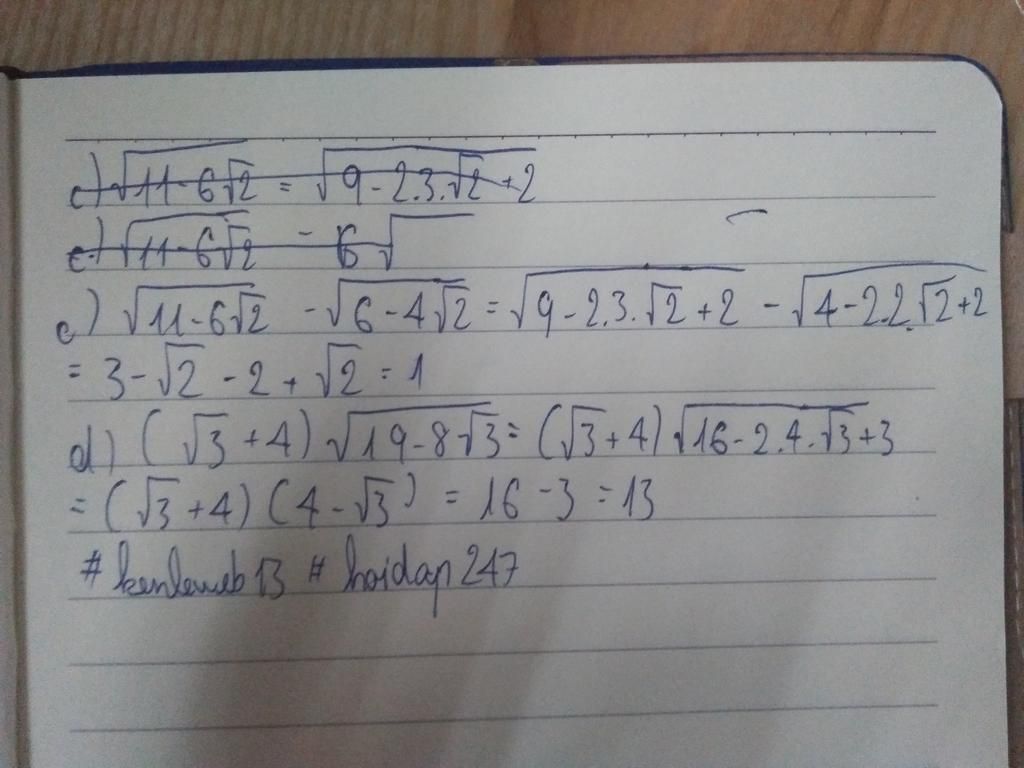 c) √11-6√2 = √9-2.3.√2+2
c) √11-6√2 - 6√
c) √11-6√2 - √6-4√2 = √9-2.3.√2+2 - √4-2.2.√2+2
= 3-√2-2+√2=1
d) (√3+4)√19-8√3= (√3+4)√16-2.4.√3+3
= (√3+4)(4-√3) = 16-3=13
# # hoidap247